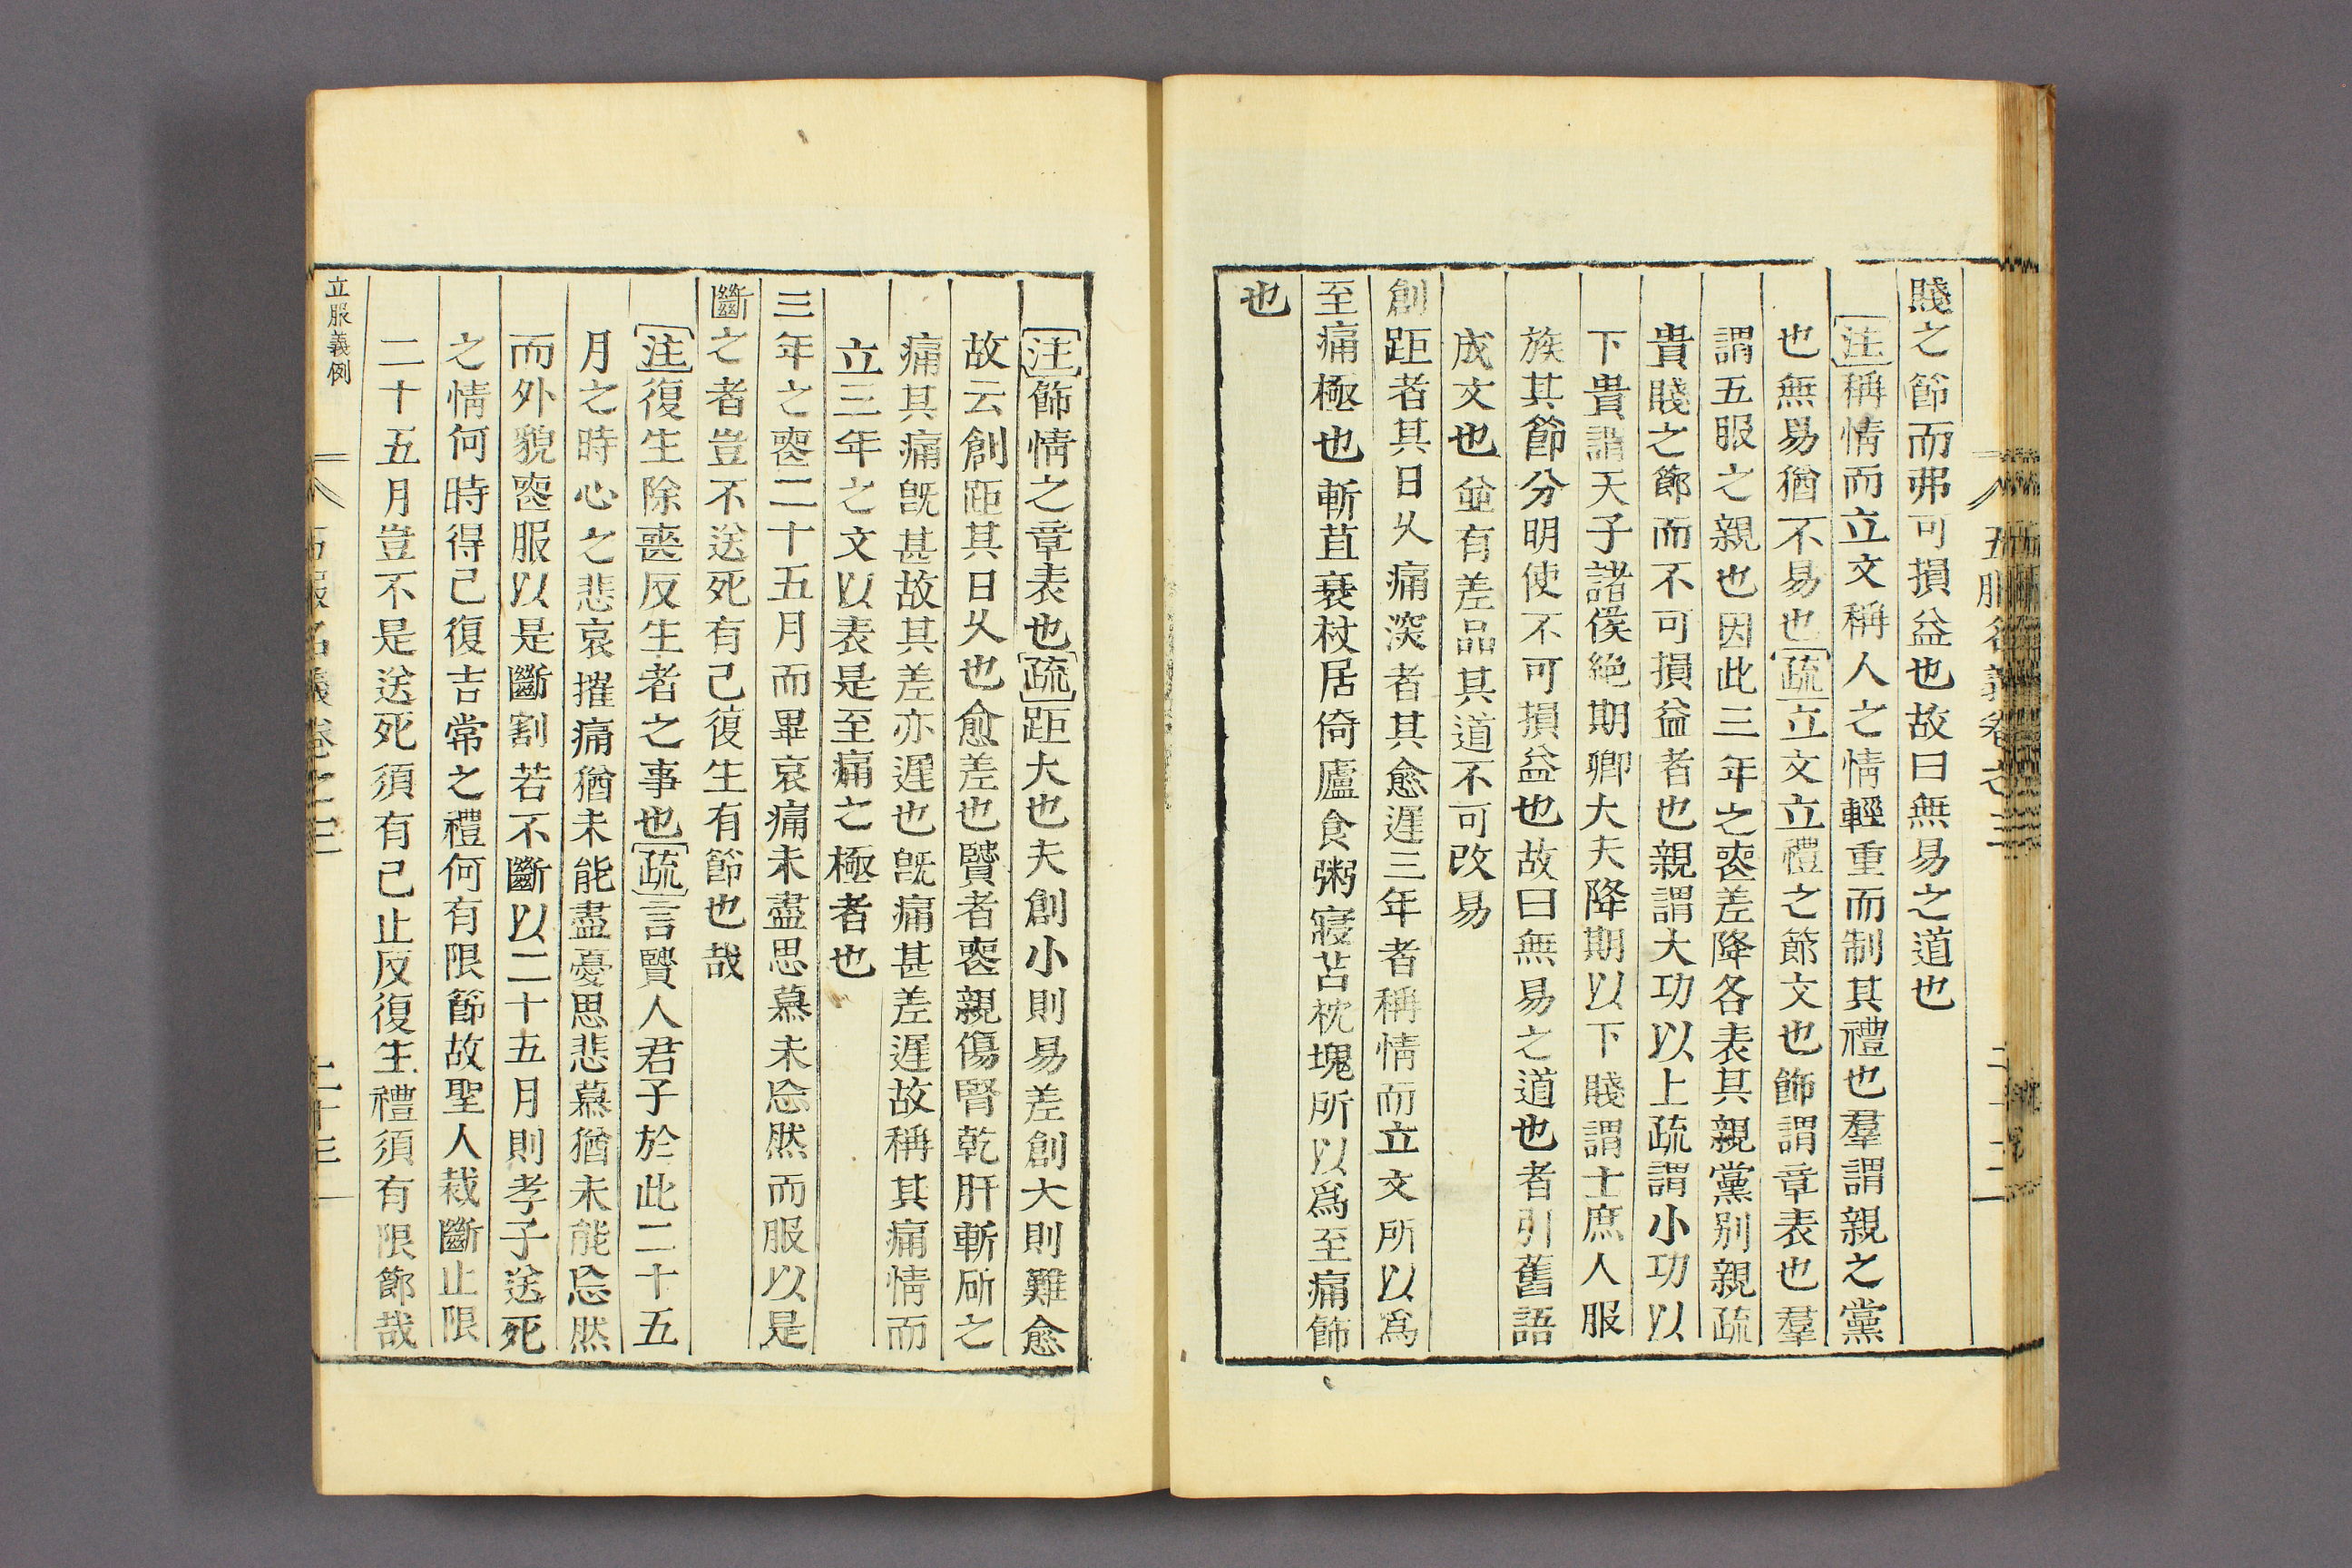 五服名義卷之三
賤之節而弗可損益也故曰無易之道也
注稱情而立文稱人之情輕重而制其禮也羣謂親之黨
也無易猶不易也疏立文立禮之節文也飾謂章表也羣
謂五服之親也因此三年之喪差降各表其親黨别親疏
貴賤之節而不可損益者也親謂大功以上疏謂小功以
下貴謂天子諸侯絶期卿大夫降期以下賤謂士庶人服
族其節分明使不可損益也故曰無易之道也者引舊語
成文也並有差品其道不可改易
創距者其日乆痛深者其愈遲三年者稱情而立文所以爲
至痛極也斬苴衰杖居倚廬食粥寢苫枕塊所以爲至痛飾
也
注飾情之章表也疏距大也夫創小則易差創大則難愈
故云創距其日乆也愈差也賢者喪親傷腎乾肝斬斫之
痛其痛旣甚故其差亦遲也旣痛甚差遲故稱其痛情而
立三年之文以表是至痛之極者也
三年之喪二十五月而畢哀痛未盡思慕未忘然而服以是
斷之者豈不送死有已復生有節也哉
注復生除喪反生者之事也疏言賢人君子於此二十五
月之時心之悲哀摧痛猶未能盡憂思悲慕猶未能忘然
而外貌喪服以是斷割若不斷以二十五月則孝子送死
之情何時得已復吉常之禮何有限節故聖人裁斷止限
二十五月豈不是送死須有已止反復生禮須有限節哉
立服義例
五服名義卷之三
二十三